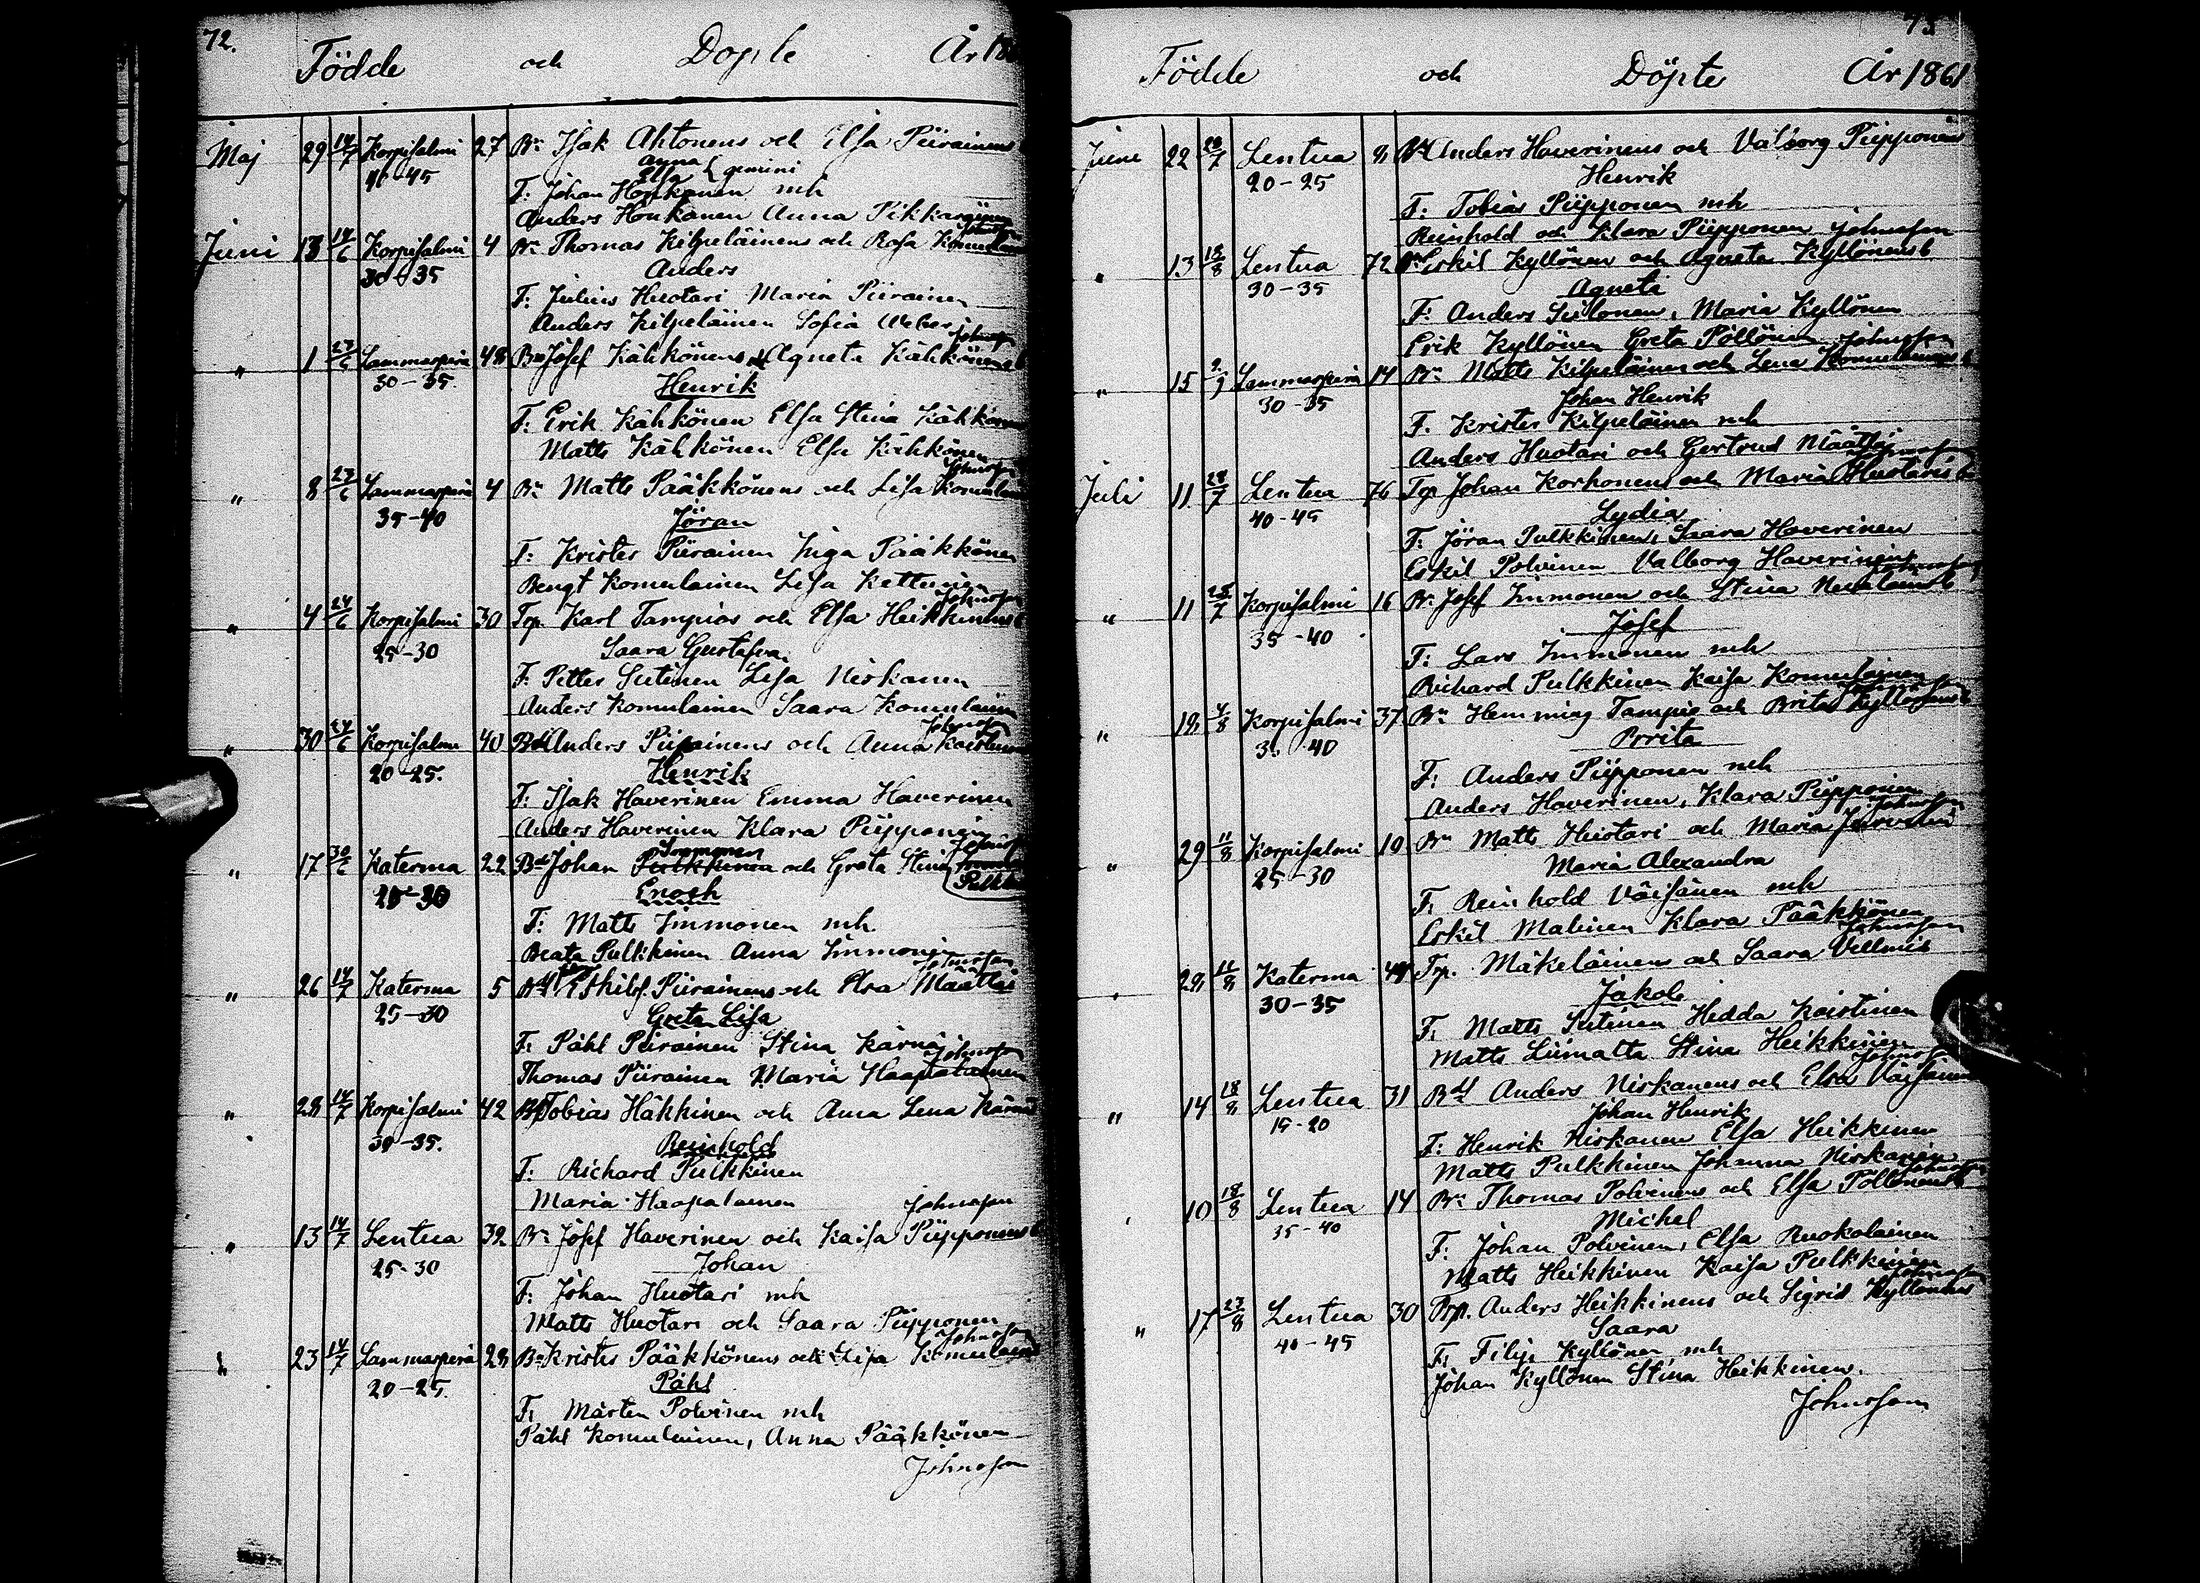 72.
Födde och Döpte År 18
Maj 29 14/7 Korpisalmi 27 Bn Isak Ahtonens och Elsa Piirainens
Anna
40-45 Elsa } gemini
F: Johan Honkanen mh
Anders Honkanen Anna Pikkarainen
Johnsson
Juni 13 14/6 Korpisalmi 4 Bn Thomas Kilpeläinens och Rosa
30-35 Anders
F: Julius Huotari Maria Piirainen
Anders Kilpeläinen Sofia Weber
Johnsson
" 1 23/6 Lammasperä 48 Bn Josef Kähkönens & Agneta Kähkönens
30-35 Henrik
F: Erik Kähkönen Elsa Stina Kähkönen
Matts Kähkönen Elsa Kähkönen
Johnsson
" 8 23/6 Lammasperä 4 Bn Matts Pääkkönens och Lisa
35-40 Jöran
F: Krister Piirainen Inga Pääkkönen
Bengt Komulainen Lisa Kettunen
Johnsson
" 4 24/6 Korpisalmi 30 Trp Karl Tampios och Elsa Heikkinens
25-30 Saara Gustafva
F: Petter Sutinen Lisa Niskanen
Anders Komulainen Saara Komulainen
Johnsson
" 30 24/6 Korpisalmi 40 Bdl Anders Piirainens och Anna
20-25. Henrik
F: Isak Haverinen Emma Haverinen
Anders Haverinen Klara Piipponen
Johnsson
Immonen
" 17 30/6 Katerma 22 Bdl Johan Pulkkinen och Greta Stina
25-30 Enosh
F: Matts Immonen mh
Beata Pulkkinen Anna Immonen
Johnsson
" 26 14/7 Katerma 5 Piirainens och Elsa Määttäs
25-30 Greta Lisa
F: Påhl Piirainen Stina Kärnä
Thomas Piirainen Maria Haapalainen
Johnsson
" 28 14/7 Korpisalmi 42 Tobias Häkkinen och Anna Lena
30-35. Reinhold
F: Richard Pulkkinen
Maria Haapalainen Johnsson
" 13 14/7 Lentua 32 Bn Josef Haverinen och Kaisa Piipponens
25-30 Johan
F: Johan Huotari mh
Matts Huotari och Saara Piipponen
Johnsson
" 23 14/7 Lammasperä 28 Bn Krister Pääkkönens och Lisa Komulains
20-25. Påhl
F: Mårten Polvinen mh
Påhl Komulainen, Anna Pääkkönen
Johnsson
73
Födde och Döpte År 1861
Juni 22 20/7 Lentua 8 Anders Haverinens och Valborg Piipponen
20-25 Henrik
F: Tobias Piipponen mh
Reinhold och Klara Piipponen Johnsson
" 13 18/8 Lentua 72 Eskil Kyllönen och Agneta Kyllönens
30-35 Agneta
F: Anders Sutonen, Maria Kyllönen
Erik Kyllönen Greta Pöllönen Johnsson
" 15 Lammasperä 14 Bn Matts Kilpeläinen och Lena Komulainens
30-35 Johan Henrik
F. Krister Kilpeläinen mh
Anders Huotari och Gertrud Määttä
Johnsson
Juli 11 28/7 Lentua 76 Trp Johan Korhonens och Maria Huotaris
40-45 Lydia
F: Jöran Pulkkinen, Saara Haverinen
Eskil Polvinen Valborg Haverinen
Johnsson
" 11 28/7 Korpisalmi 16 Bn Josef Immonen och Stina
35-40 Josef
F: Lars Immonen mh
Richard Pulkkinen Kaisa Komulainen
Johnsson
" 18 4/8 Korpisalmi 37 Bn Hemming Tampio och Brita Kyllönens
35 40 Brita
F: Anders Piipponen mh
Anders Haverinen, Klara Piipponen
Johnsson
" 29 11/8 Korpisalmi 10 Bn Matts Huotari och Maria
25-30 Maria Alexandra
F. Reinhold Väisänen mh
Eskil Malinen Klara Pääkkönen
Johnsson
" 28 11/8 Katerma 44 Trp. Mäkeläinens och Saara
30-35 Jakob
F. Matts Sutinen Hedda Kaistinen
Matts Liimatta Stina Heikkinen
Johnsson
" 14 18/8 Lentua 31 Bdl Anders Niskanens och Elsa Väisänen
15-20 Johan Henrik
F: Henrik Niskanen Elsa Heikkinen
Matts Pulkkinen Johanna Niskanen
Johnsson
" 10 18/8 Lentua 14 Bn Thomas Polvinens och Elsa Pöllönens
35-40 Michel
F. Johan Polvinen, Elsa Ruokolainen
Matts Heikkinen Kaisa Pulkkinen
Johnsson
" 17 23/8 Lentua 30 Trp. Anders Heikkinens och Sigrid Kyllönens
40-45 Saara
F. Filip Kyllönen mh
Johan Kyllönen Stina Heikkinen.
Johnsson